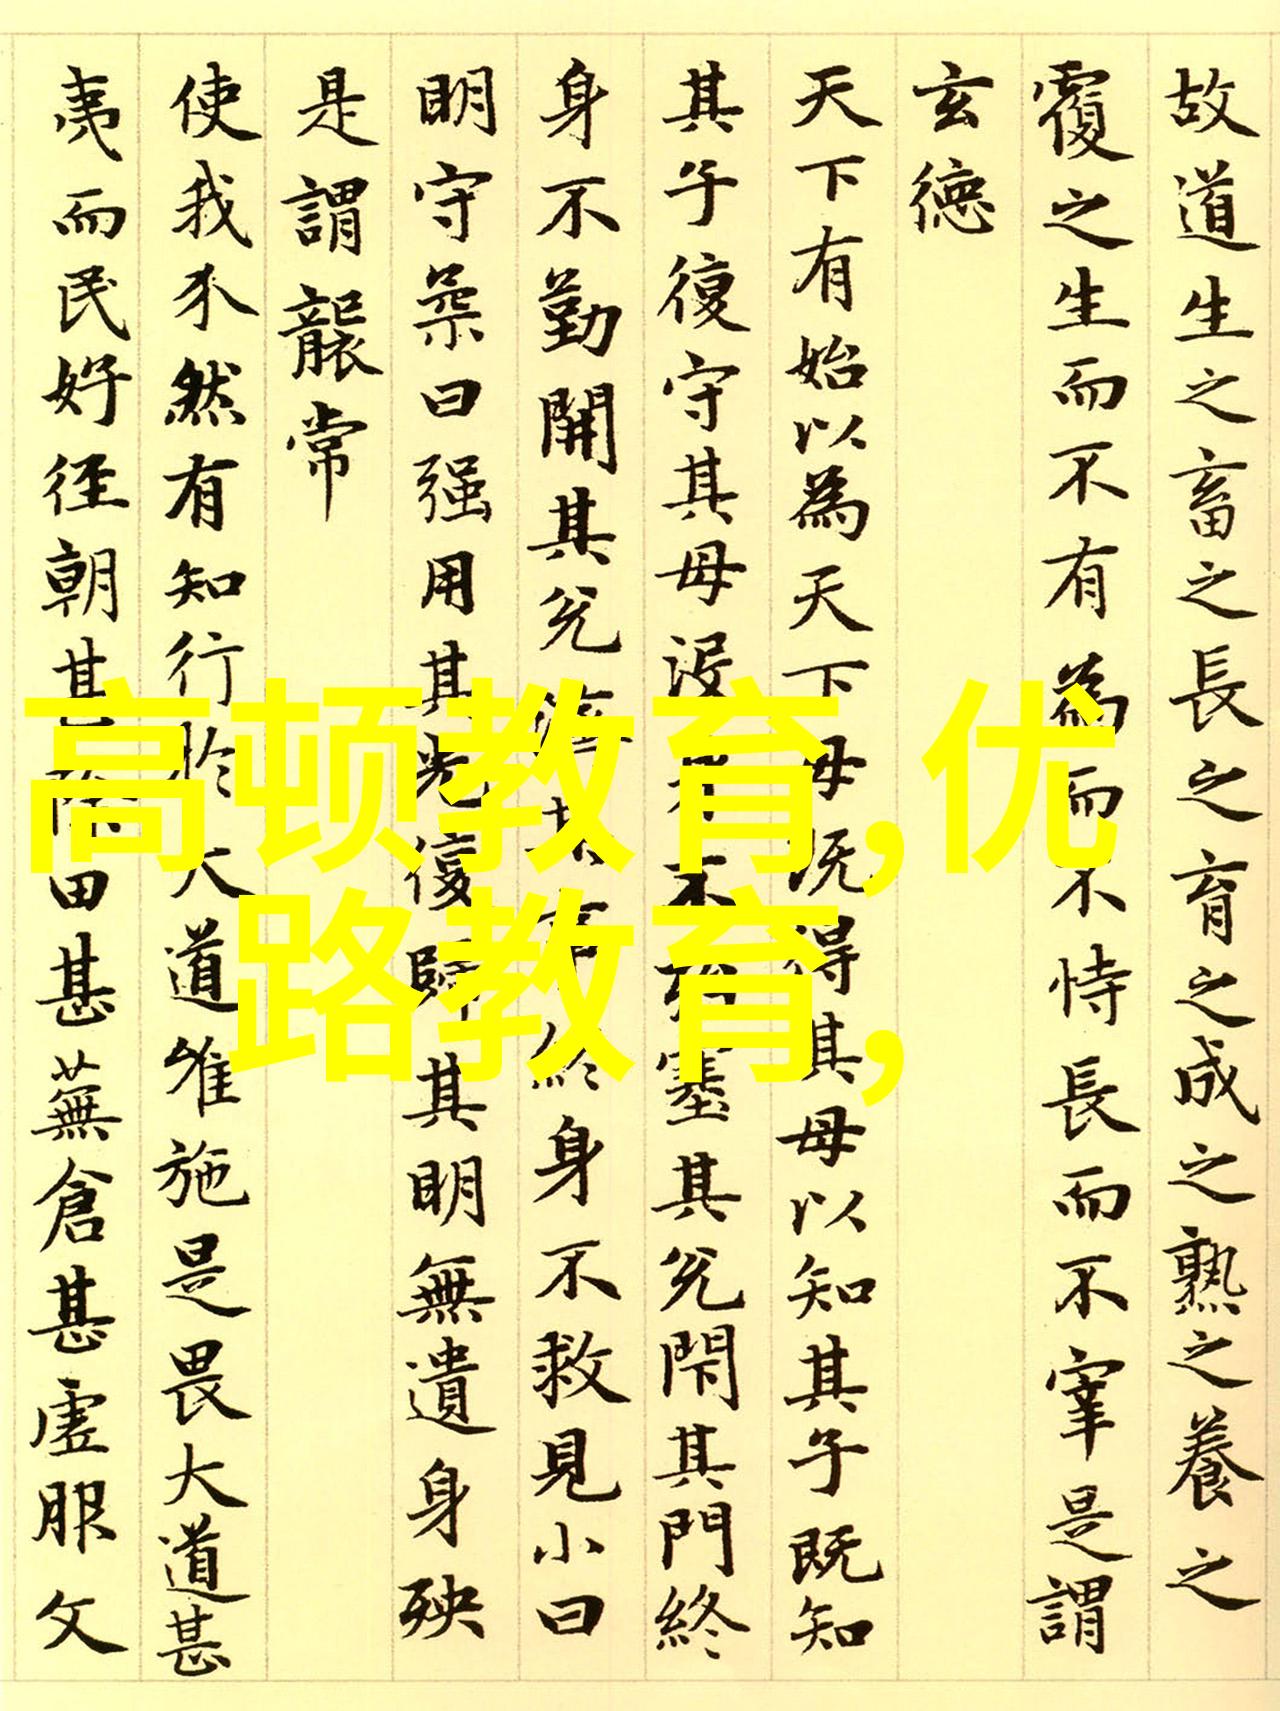 故道生之畜之長之育之成之熟之養之
覆之生而不有為而不恃長而不宰是謂
玄德
天下有始以為天下母既得其母以知其子既知
其子復守其母没身不不殆塞其兌閇其門終
身不勤開其兌濟其事終身不救見小曰
明守柔曰强用其光復歸其明無遺身殃
是謂襲常
使我介然有知行於大道唯施是畏大道甚
夷而民好徑朝甚除田甚蕪倉甚虛服文
高顿教育,优
路教育,